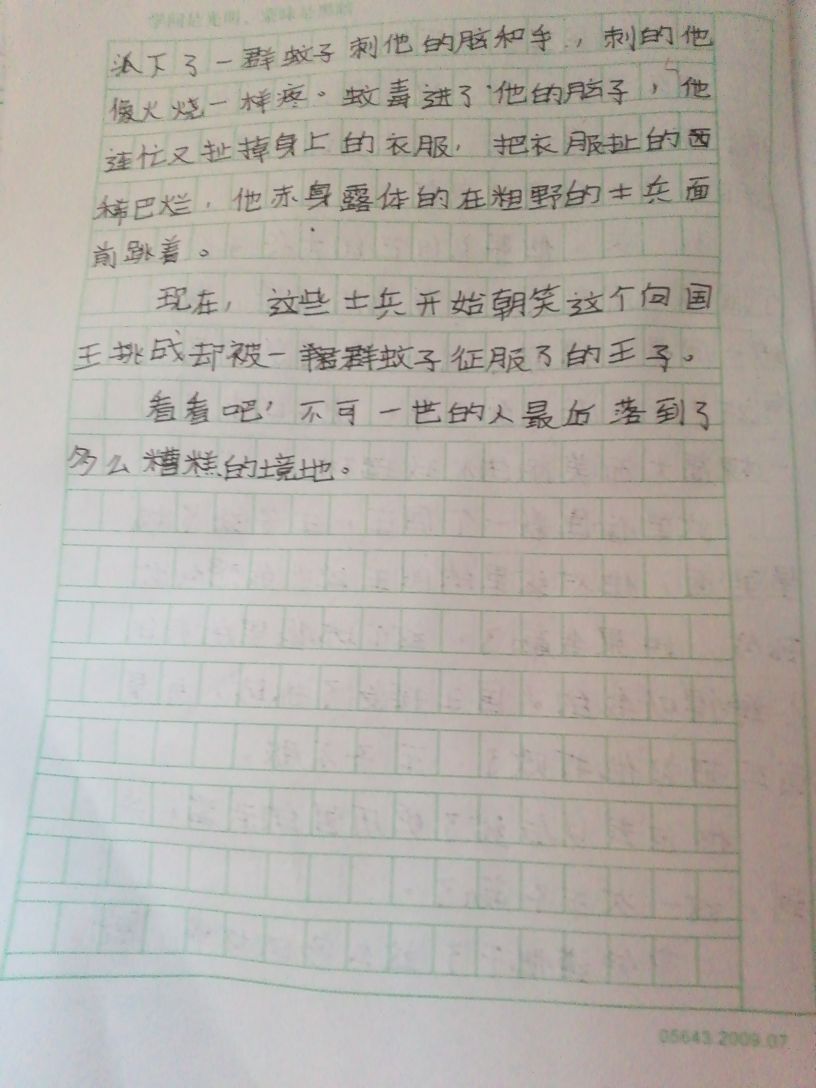 学问是光明，蒙昧是黑暗
派下了一群蚊子刺他的脑和手，刺的他
像火烧一样疼。蚊毒进了他的脑子，他
连忙又扯掉身上的衣服，把衣服扯的西
稀巴烂，他赤身露体的在粗野的士兵面
前跳着。
现在，这些士兵开始朝笑这个向国
王挑战却被一群蚊子征服了的王子。
看看吧！不可一世的人最后落到了
多么糟糕的境地。
05643.2009.07